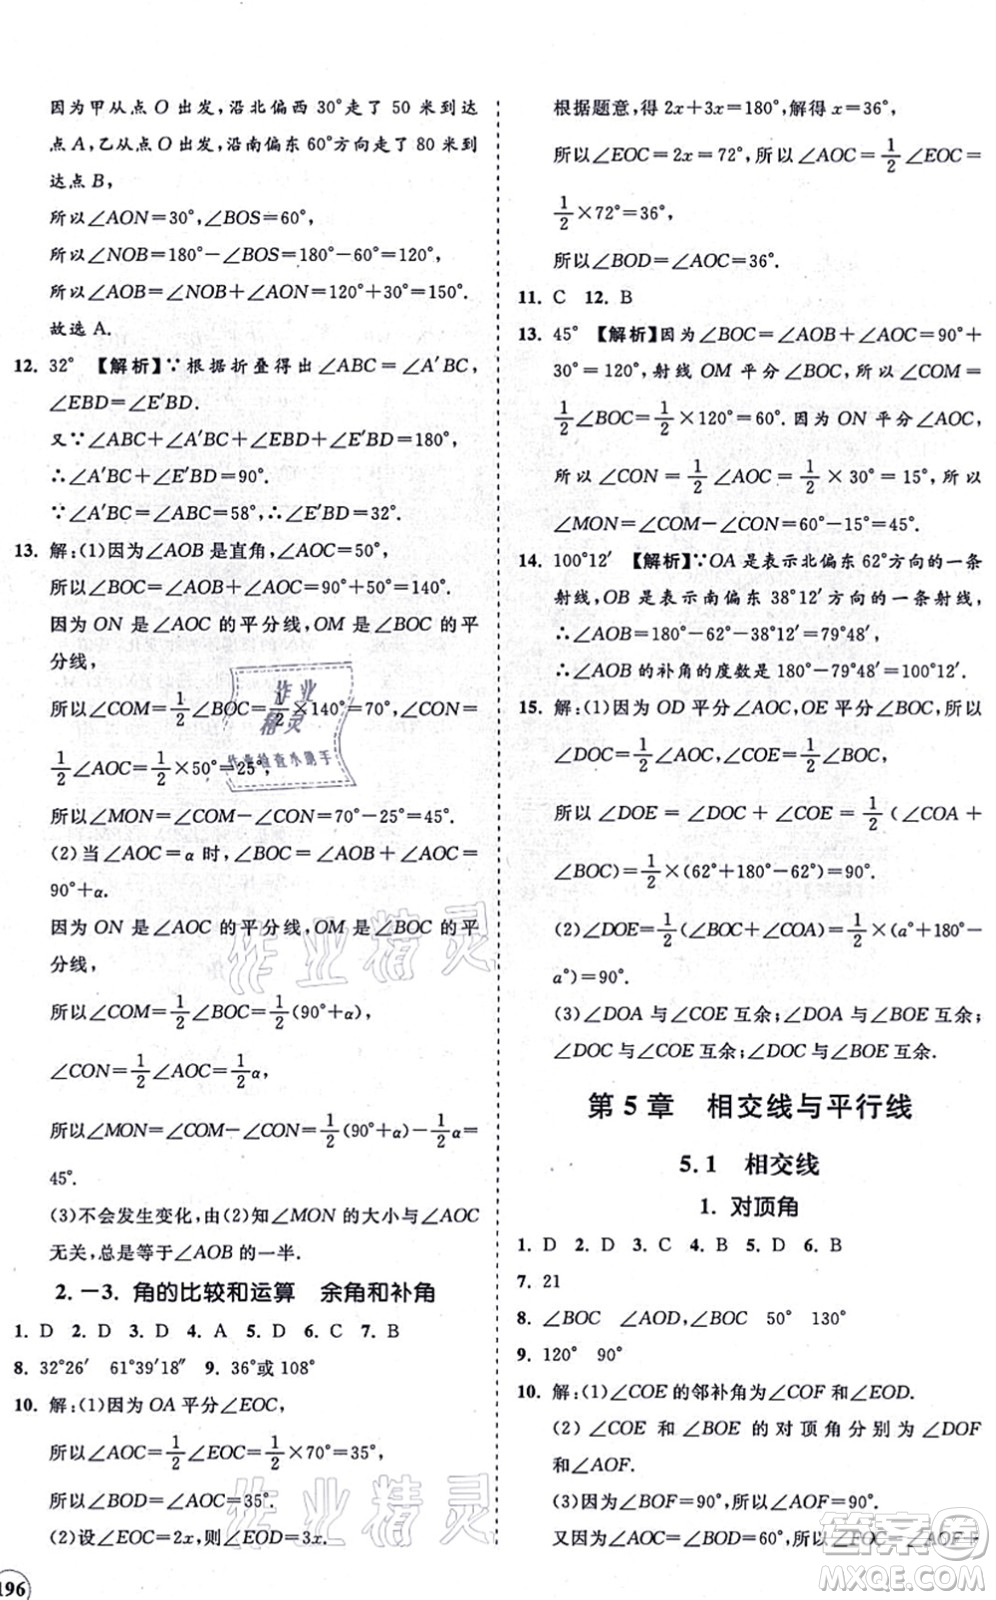 因为甲从点 O 出发,沿北偏西 30°走了 50 米到达
点 A,乙从点 O 出发,沿南偏东 60°方向走了 80 米到
达点 B,
所以∠AON=30°,∠BOS=60°,
所以∠NOB=180°-∠BOS=180°-60°=120°,
所以∠AOB=∠NOB+∠AON=120°+30°=150°.
故选 A.
12. 32° 【解析】∵根据折叠得出∠ABC=∠A′BC,
∠EBD=∠E′BD.
又∵∠ABC+∠A′BC+∠EBD+∠E′BD=180°,
∴∠A′BC+∠E′BD=90°.
∵∠A′BC=∠ABC=58°,∴∠E′BD=32°.
13. 解:(1)因为∠AOB 是直角,∠AOC=50°,
所以∠BOC=∠AOB+∠AOC=90°+50°=140°.
因为 ON 是∠AOC 的平分线,OM 是∠BOC 的平
分线,
所以∠COM=1/2∠BOC=1/2×140°=70°,∠CON=
1/2∠AOC=1/2×50°=25°,
所以∠MON=∠COM-∠CON=70°-25°=45°.
(2)当∠AOC=α 时,∠BOC=∠AOB+∠AOC=
90°+α.
因为 ON 是∠AOC 的平分线,OM 是∠BOC 的平
分线,
所以∠COM=1/2∠BOC=1/2(90°+α),
∠CON=1/2∠AOC=1/2α,
所以∠MON=∠COM-∠CON=1/2(90°+α)-1/2α=
45°.
(3)不会发生变化,由(2)知∠MON 的大小与∠AOC
无关,总是等于∠AOB 的一半.
2.-3. 角的比较和运算 余角和补角
1. D 2. D 3. D 4. A 5. D 6. C 7. B
8. 32°26′ 61°39′18″ 9. 36°或 108°
10. 解:(1)因为 OA 平分∠EOC,
所以∠AOC=1/2∠EOC=1/2×70°=35°,
所以∠BOD=∠AOC=35°.
(2)设∠EOC=2x,则∠EOD=3x.
196
根据题意,得 2x+3x=180°,解得 x=36°,
所以∠EOC=2x=72°,所以∠AOC=1/2∠EOC=
1/2×72°=36°,
所以∠BOD=∠AOC=36°.
11. C 12. B
13. 45° 【解析】因为∠BOC=∠AOB+∠AOC=90°+
30°=120°,射线 OM 平分∠BOC,所以∠COM=
1/2∠BOC=1/2×120°=60°.因为 ON 平分∠AOC,
所以∠CON=1/2∠AOC=1/2×30°=15°,所以
∠MON=∠COM-∠CON=60°-15°=45°.
14. 100°12′ 【解析】∵OA 是表示北偏东 62°方向的一条
射线,OB 是表示南偏东 38°12′方向的一条射线,
∴∠AOB=180°-62°-38°12′=79°48′,
∴∠AOB 的补角的度数是 180°-79°48′=100°12′.
15. 解:(1)因为 OD 平分∠AOC,OE 平分∠BOC,所以
∠DOC=1/2∠AOC,∠COE=1/2∠BOC,
所以∠DOE=∠DOC+∠COE=1/2(∠COA+
∠BOC)=1/2×(62°+180°-62°)=90°.
(2)∠DOE=1/2(∠BOC+∠COA)=1/2×(a°+180°-
a°)=90°.
(3)∠DOA 与∠COE 互余;∠DOA 与∠BOE 互余;
∠DOC 与∠COE 互余;∠DOC 与∠BOE 互余.
第 5 章 相交线与平行线
5.1 相交线
1. 对顶角
1. D 2. D 3. C 4. B 5. D 6. B
7. 21
8. ∠BOC ∠AOD,∠BOC 50° 130°
9. 120° 90°
10. 解:(1)∠COE 的邻补角为∠COF 和∠EOD.
(2)∠COE 和∠BOE 的对顶角分别为∠DOF 和
∠AOF.
(3)因为∠BOF=90°,所以∠AOF=90°.
又因为∠AOC=∠BOD=60°,所以∠FOC=∠AOF+
作业精灵
作业检查小助手
作业精灵
作业精灵
答案圈
MXQE.COM